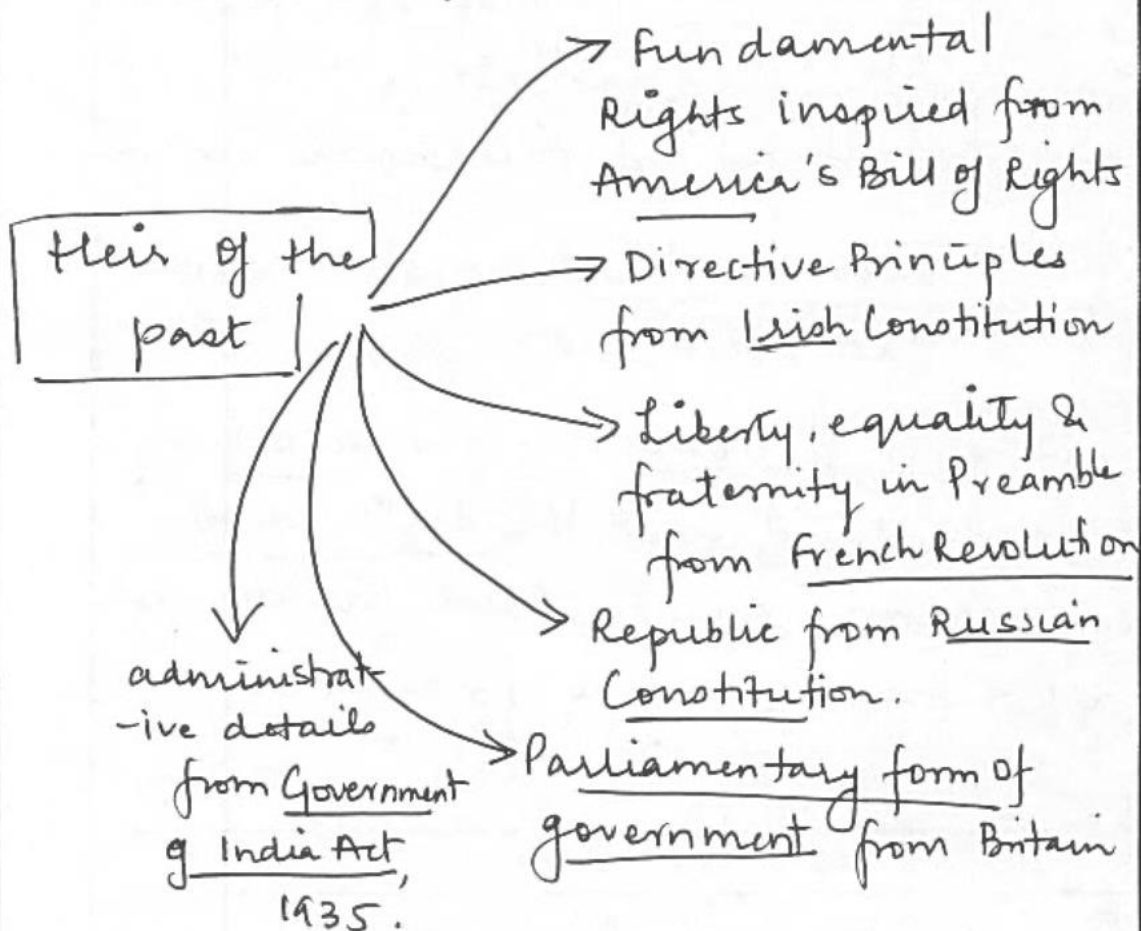 Heir of the
past
Fundamental
Rights inspired from
America's Bill of Rights
Directive Principles
from Irish Constitution
Liberty, equality &
fraternity in Preamble
from French Revolution
Republic from Russian
Constitution.
Parliamentary form of
government from Britain
administrat-
-ive details
from Government
of India Act,
1935.